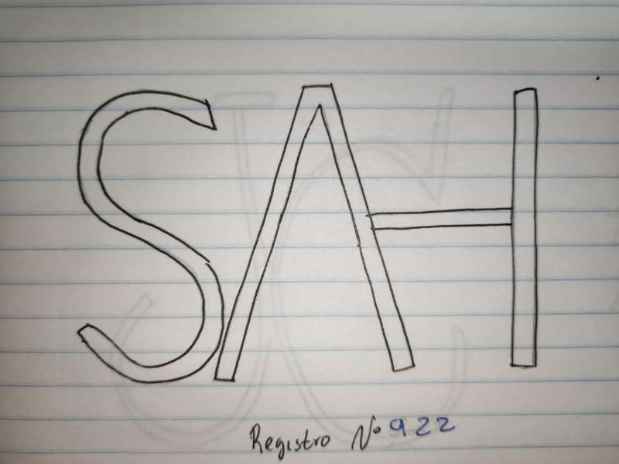 SAH
Registro Nº 922